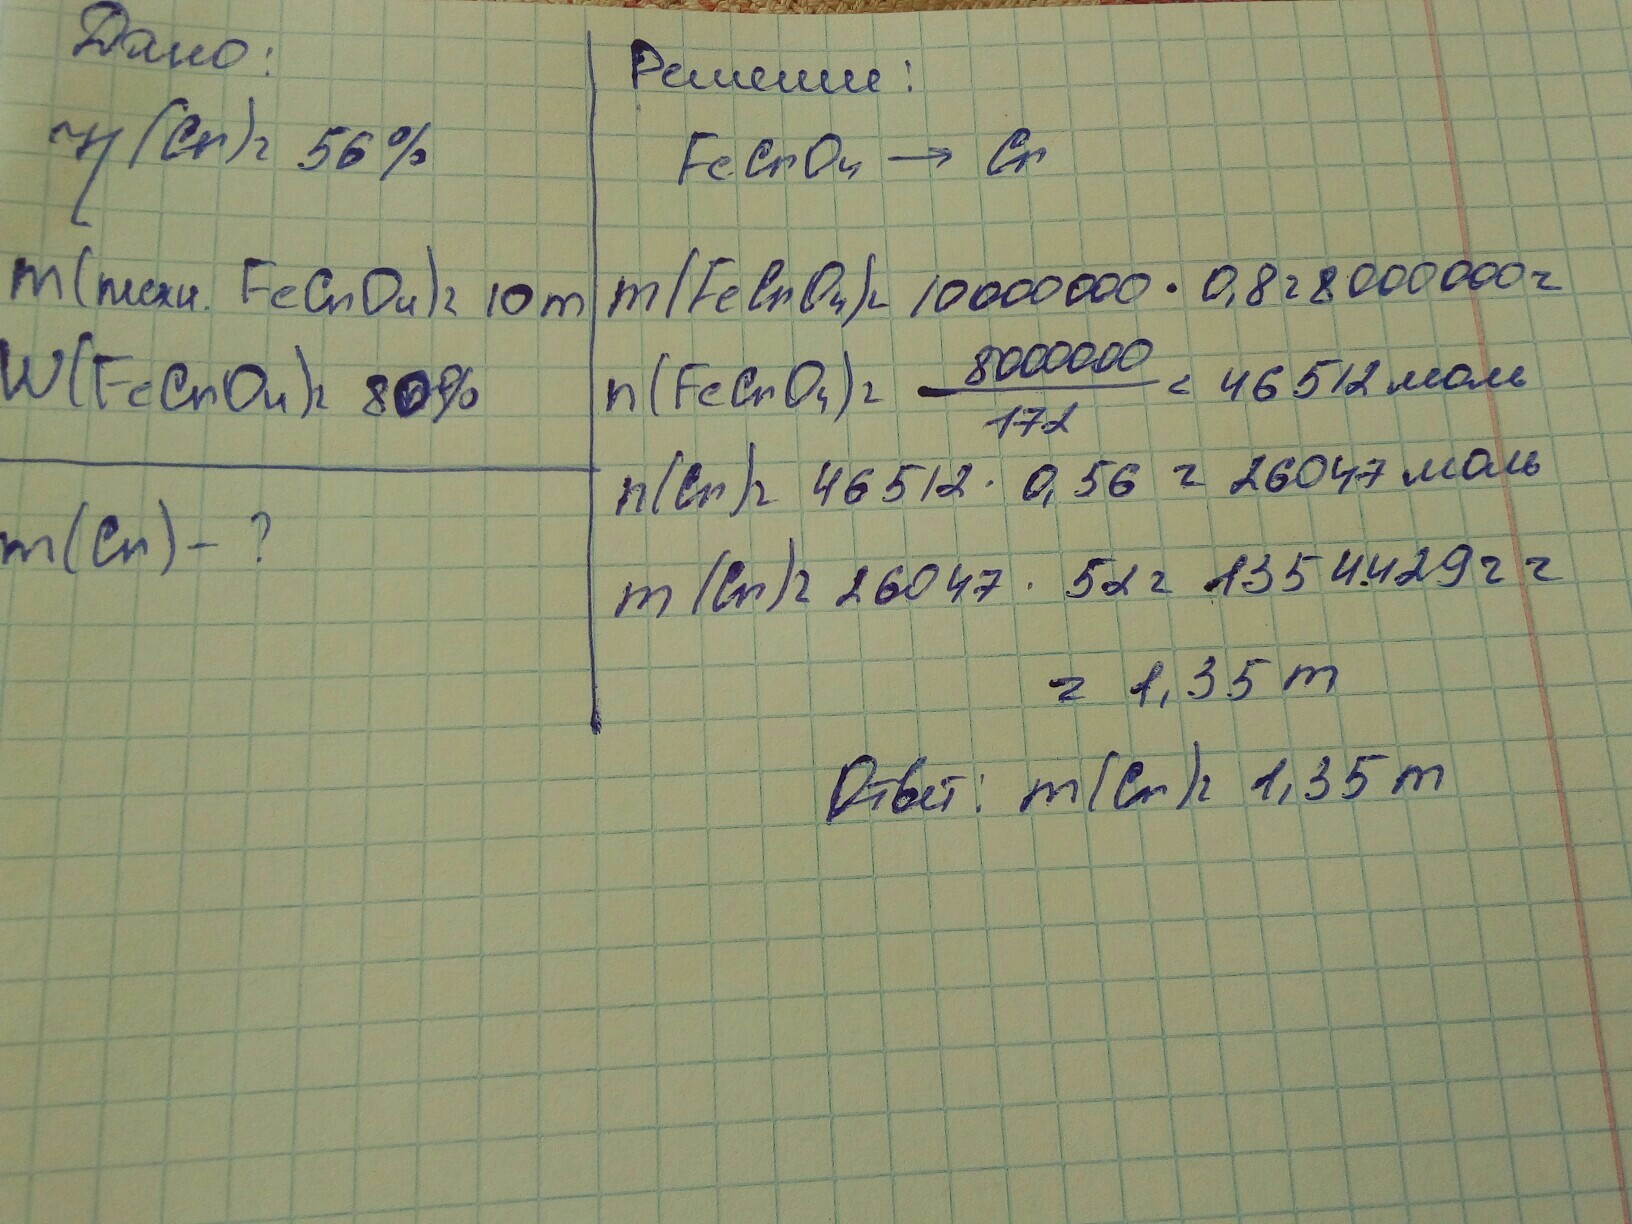 Дано:
η(Cr)= 56%
m(техн. FeCrO4)= 10т
W(FeCrO4)= 80%
m(Cr) - ?
Решение:
FeCrO4 → Cr
m(FeCrO4)= 10000000 · 0,8=8000000г
n(FeCrO4)= 8000000/172 = 46512 моль
n(Cr)= 46512 · 0,56 = 26047 моль
m(Cr)= 26047 · 52= 1354429г =
= 1,35 т
Ответ: m(Cr)= 1,35 т